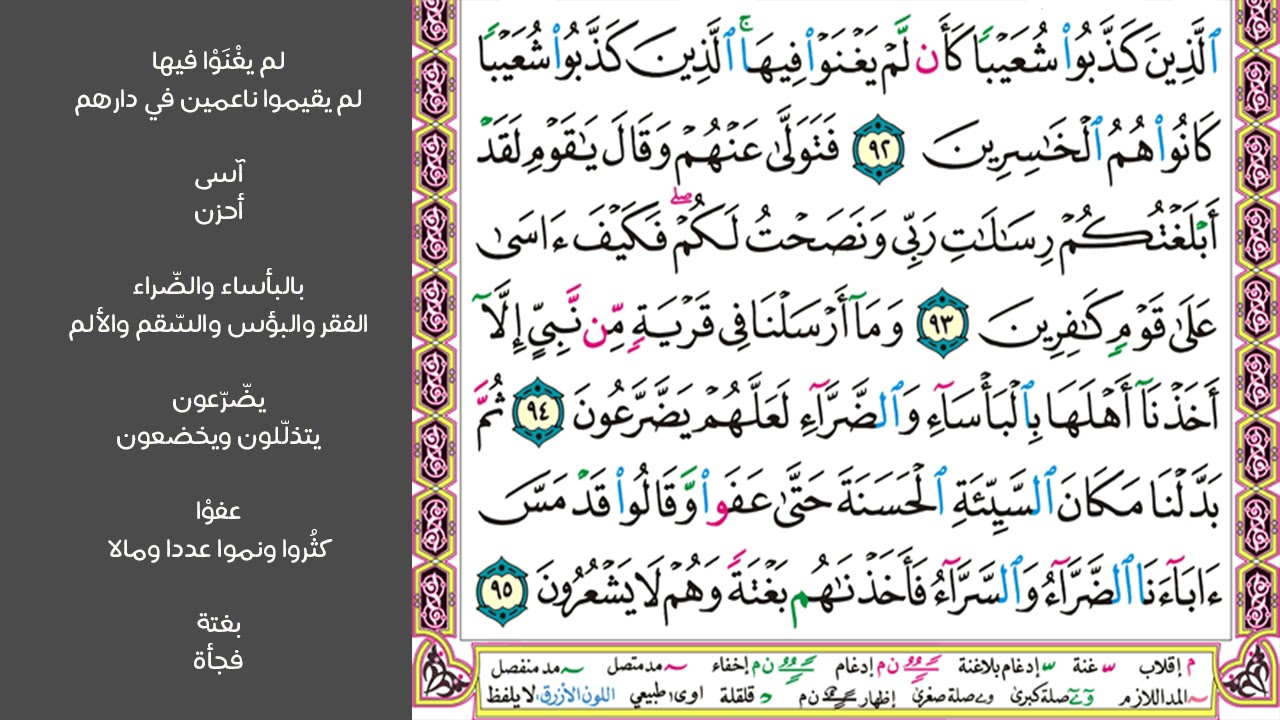 ٱلَّذِينَ كَذَّبُوا۟ شُعَيْبًا كَأَن لَّمْ يَغْنَوْا۟ فِيهَا ۚ ٱلَّذِينَ كَذَّبُوا۟ شُعَيْبًا
كَانُوا۟ هُمُ ٱلْخَـٰسِرِينَ ٩٢ فَتَوَلَّىٰ عَنْهُمْ وَقَالَ يَـٰقَوْمِ لَقَدْ
أَبْلَغْتُكُمْ رِسَـٰلَـٰتِ رَبِّى وَنَصَحْتُ لَكُمْ ۖ فَكَيْفَ ءَاسَىٰ
عَلَىٰ قَوْمٍ كَـٰفِرِينَ ٩٣ وَمَآ أَرْسَلْنَا فِى قَرْيَةٍ مِّن نَّبِىٍّ إِلَّآ
أَخَذْنَآ أَهْلَهَا بِٱلْبَأْسَآءِ وَٱلضَّرَّآءِ لَعَلَّهُمْ يَضَّرَّعُونَ ٩٤ ثُمَّ
بَدَّلْنَا مَكَانَ ٱلسَّيِّئَةِ ٱلْحَسَنَةَ حَتَّىٰ عَفَوا۟ وَّقَالُوا۟ قَدْ مَسَّ
ءَابَآءَنَا ٱلضَّرَّآءُ وَٱلسَّرَّآءُ فَأَخَذْنَـٰهُم بَغْتَةً وَهُمْ لَا يَشْعُرُونَ ٩٥
م إقلاب غنة إدغام بلاغنة ن م إدغام ن م إخفاء مد متصل مد منفصل
المد اللازم صلة كبرى صلة صغرى إظهار ن م قلقلة اوى طبيعي اللون الأزرق: لا يلفظ
لم يغْنَوْا فيها
لم يقيموا ناعمين في دارهم
آسى
أحزن
بالبأساء والضّراء
الفقر والبؤس والسّقم والألم
يضّرّعون
يتذلّلون ويخضعون
عفوْا
كثُروا ونموا عددا ومالا
بغتة
فجأة